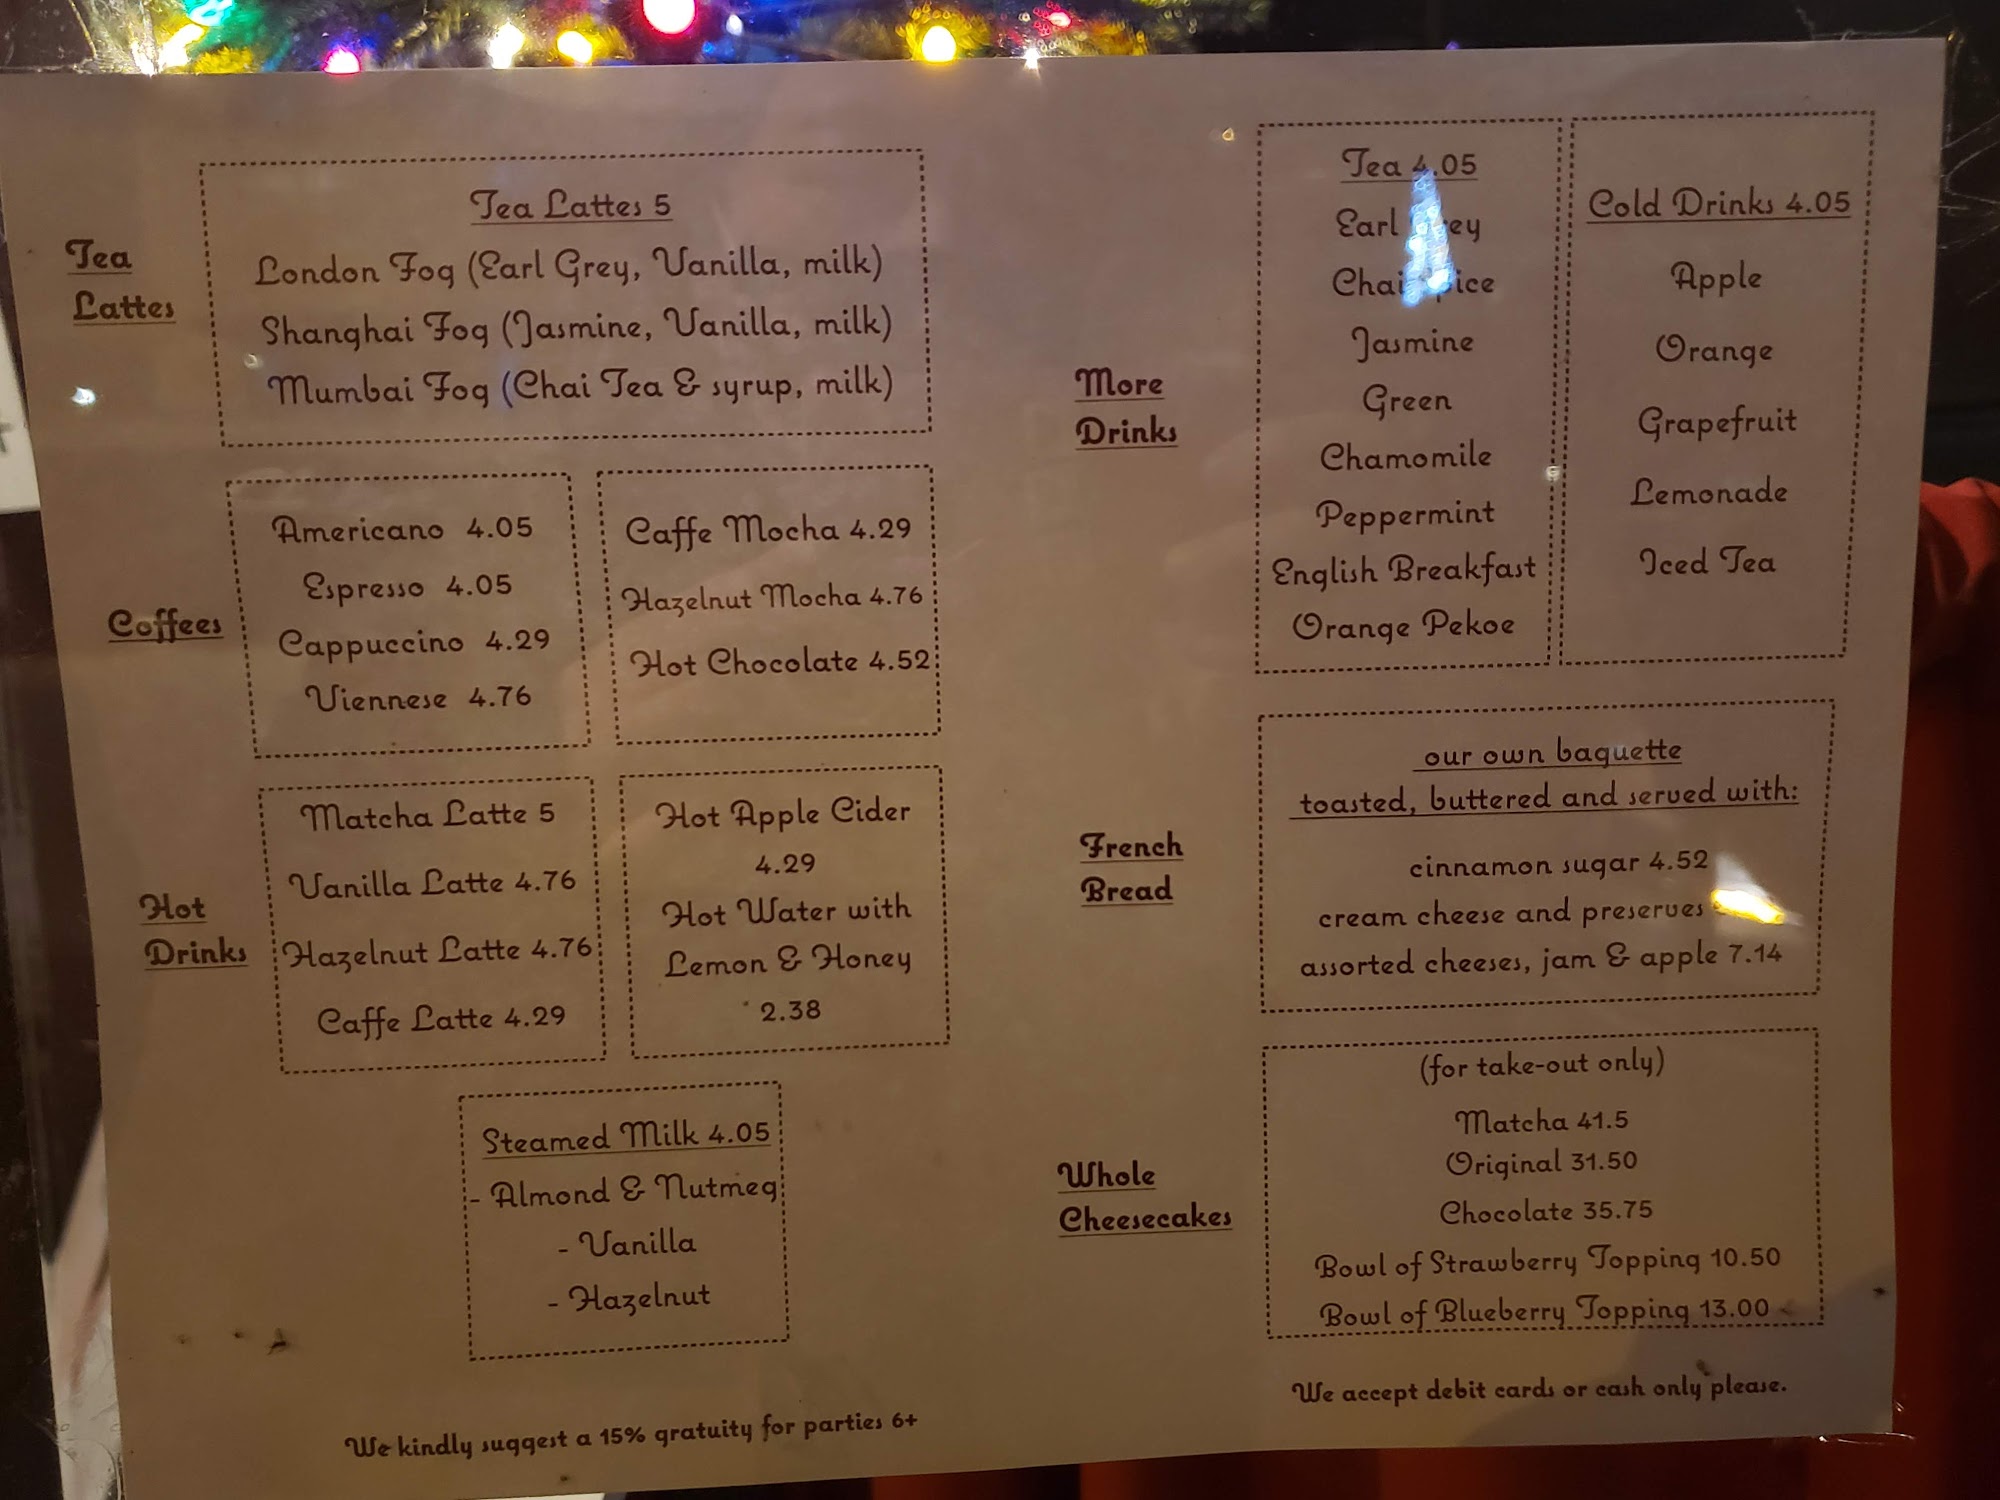 Tea
Lattes
Tea Lattes 5
London Fog (Earl Grey, Vanilla, milk)
Shanghai Fog (Jasmine, Vanilla, milk)
Mumbai Fog (Chai Tea & syrup, milk)
Coffees
Americano 4.05
Espresso 4.05
Cappuccino 4.29
Viennese 4.76
Caffe Mocha 4.29
Hazelnut Mocha 4.76
Hot Chocolate 4.52
Hot
Drinks
Matcha Latte 5
Vanilla Latte 4.76
Hazelnut Latte 4.76
Caffe Latte 4.29
Hot Apple Cider
4.29
Hot Water with
Lemon & Honey
2.38
Steamed Milk 4.05
- Almond & Nutmeg
- Vanilla
- Hazelnut
We kindly suggest a 15% gratuity for parties 6+
More
Drinks
Tea 4.05
Earl Grey
Chai Spice
Jasmine
Green
Chamomile
Peppermint
English Breakfast
Orange Pekoe
Cold Drinks 4.05
Apple
Orange
Grapefruit
Lemonade
Iced Tea
French
Bread
our own baguette
toasted, buttered and served with:
cinnamon sugar 4.52
cream cheese and preserves
assorted cheeses, jam & apple 7.14
Whole
Cheesecakes
(for take-out only)
Matcha 41.5
Original 31.50
Chocolate 35.75
Bowl of Strawberry Topping 10.50
Bowl of Blueberry Topping 13.00
We accept debit cards or cash only please.